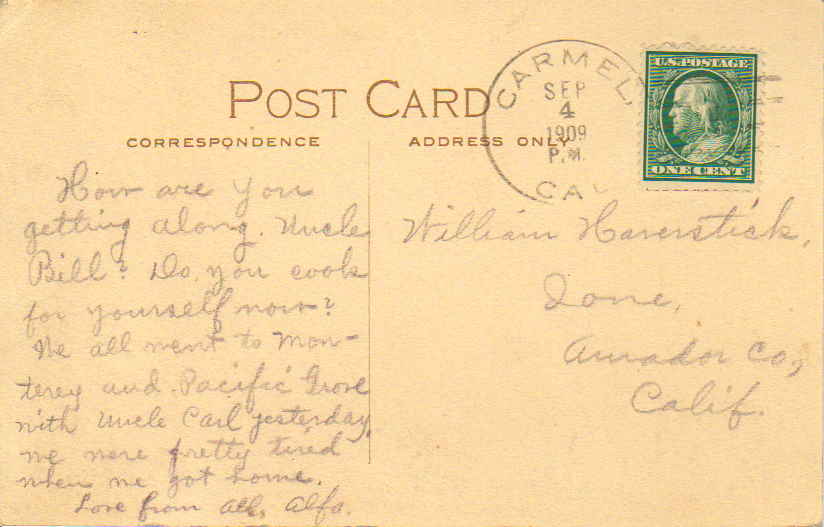 POST CARD
CORRESPONDENCE
ADDRESS ONLY
CARMEL,
SEP
4
1909
P.M.
CAL
U.S. POSTAGE
ONE CENT
How are you
getting along. Uncle
Bill? Do, you cook
for yourself now?
We all went to Mon-
terey and Pacific Grove
with Uncle Carl yesterday
we were pretty tired
when we got home.
Love from all, Alfa.
William Haverstick,
Ione,
Amador Co,
Calif.